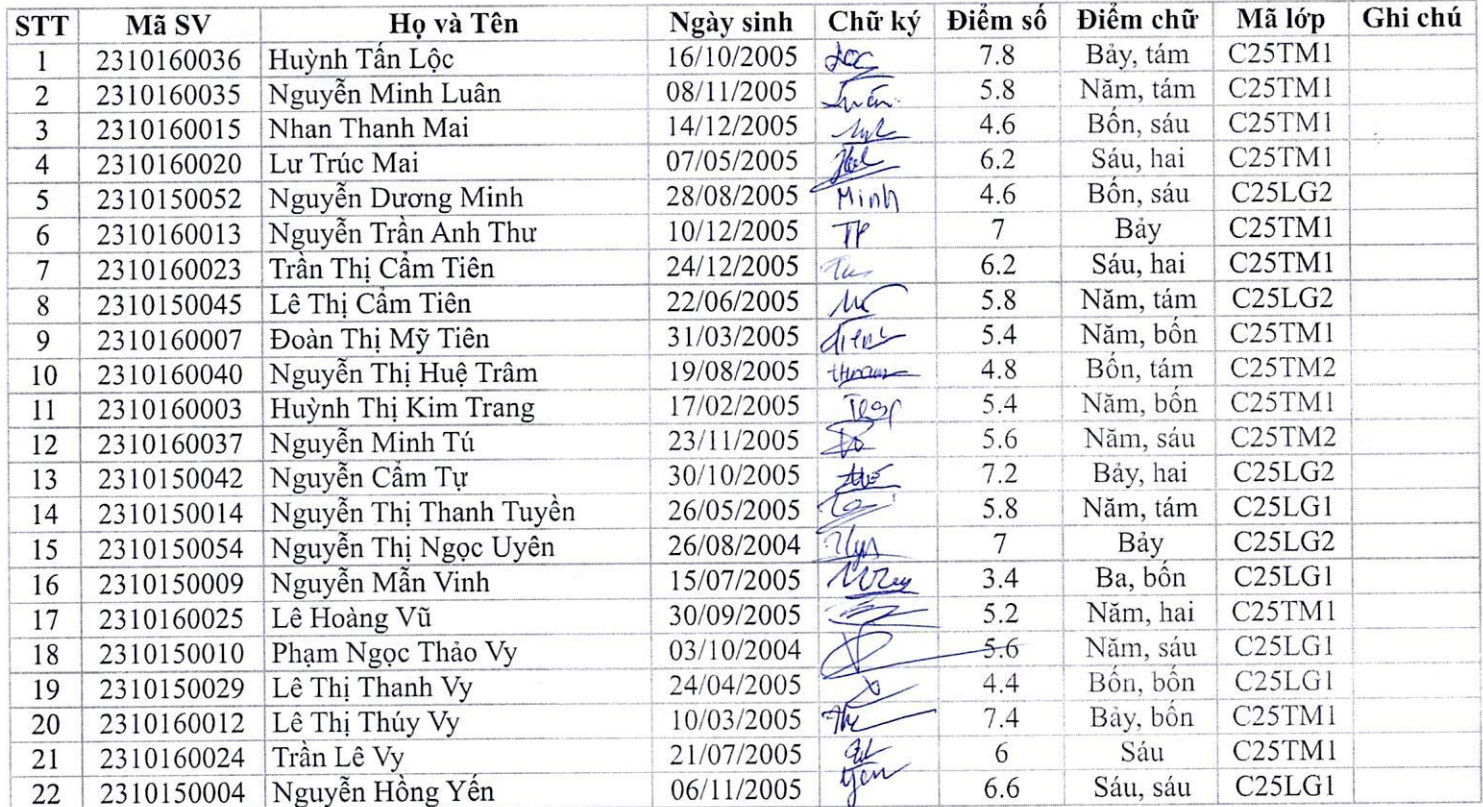 STT Mã SV Họ và Tên Ngày sinh Chữ ký Điểm số Điểm chữ Mã lớp Ghi chú
1 2310160036 Huỳnh Tấn Lộc 16/10/2005 7.8 Bảy, tám C25TM1
2 2310160035 Nguyễn Minh Luân 08/11/2005 5.8 Năm, tám C25TM1
3 2310160015 Nhan Thanh Mai 14/12/2005 4.6 Bốn, sáu C25TM1
4 2310160020 Lư Trúc Mai 07/05/2005 6.2 Sáu, hai C25TM1
5 2310150052 Nguyễn Dương Minh 28/08/2005 Minh 4.6 Bốn, sáu C25LG2
6 2310160013 Nguyễn Trần Anh Thư 10/12/2005 7 Bảy C25TM1
7 2310160023 Trần Thị Cẩm Tiên 24/12/2005 6.2 Sáu, hai C25TM1
8 2310150045 Lê Thị Cẩm Tiên 22/06/2005 5.8 Năm, tám C25LG2
9 2310160007 Đoàn Thị Mỹ Tiên 31/03/2005 5.4 Năm, bốn C25TM1
10 2310160040 Nguyễn Thị Huệ Trâm 19/08/2005 4.8 Bốn, tám C25TM2
11 2310160003 Huỳnh Thị Kim Trang 17/02/2005 5.4 Năm, bốn C25TM1
12 2310160037 Nguyễn Minh Tú 23/11/2005 5.6 Năm, sáu C25TM2
13 2310150042 Nguyễn Cẩm Tự 30/10/2005 7.2 Bảy, hai C25LG2
14 2310150014 Nguyễn Thị Thanh Tuyền 26/05/2005 5.8 Năm, tám C25LG1
15 2310150054 Nguyễn Thị Ngọc Uyên 26/08/2004 7 Bảy C25LG2
16 2310150009 Nguyễn Mẫn Vinh 15/07/2005 3.4 Ba, bốn C25LG1
17 2310160025 Lê Hoàng Vũ 30/09/2005 5.2 Năm, hai C25TM1
18 2310150010 Phạm Ngọc Thảo Vy 03/10/2004 5.6 Năm, sáu C25LG1
19 2310150029 Lê Thị Thanh Vy 24/04/2005 4.4 Bốn, bốn C25LG1
20 2310160012 Lê Thị Thúy Vy 10/03/2005 7.4 Bảy, bốn C25TM1
21 2310160024 Trần Lê Vy 21/07/2005 6 Sáu C25TM1
22 2310150004 Nguyễn Hồng Yến 06/11/2005 Yến 6.6 Sáu, sáu C25LG1